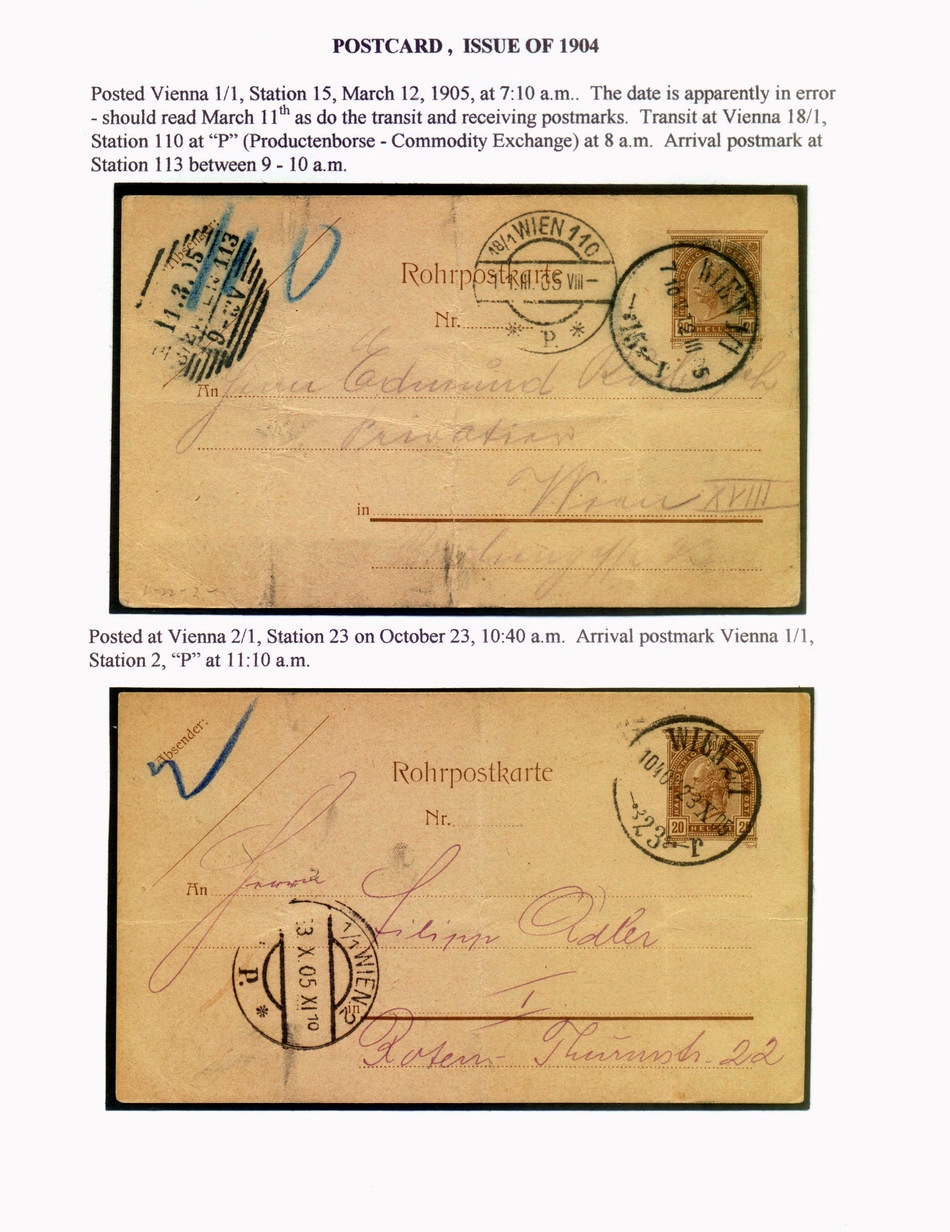 POSTCARD , ISSUE OF 1904
Posted Vienna 1/1, Station 15, March 12, 1905, at 7:10 a.m.. The date is apparently in error
- should read March 11th as do the transit and receiving postmarks. Transit at Vienna 18/1,
Station 110 at “P” (Productenborse - Commodity Exchange) at 8 a.m. Arrival postmark at
Station 113 between 9 - 10 a.m.
Absender:
110
11.3.05
113
18/1 WIEN 110
11.III.05 VIII–
* P. *
WIEN 1/1
7 10
III 05
15
Rohrpostkarte
20 HELLER 20
Nr.
An Herrn Edmund
Privatier
in Wien XVIII
Posted at Vienna 2/1, Station 23 on October 23, 10:40 a.m. Arrival postmark Vienna 1/1,
Station 2, “P” at 11:10 a.m.
Absender:
2
Rohrpostkarte
WIEN 2/1
1040 23 X 05
23
20 HELLER 20
Nr.
An Herrn
Filipp Adler
1/1 WIEN 2
3.X.05 XI 10
P. *
in I
Roten- Thurmstr. 22